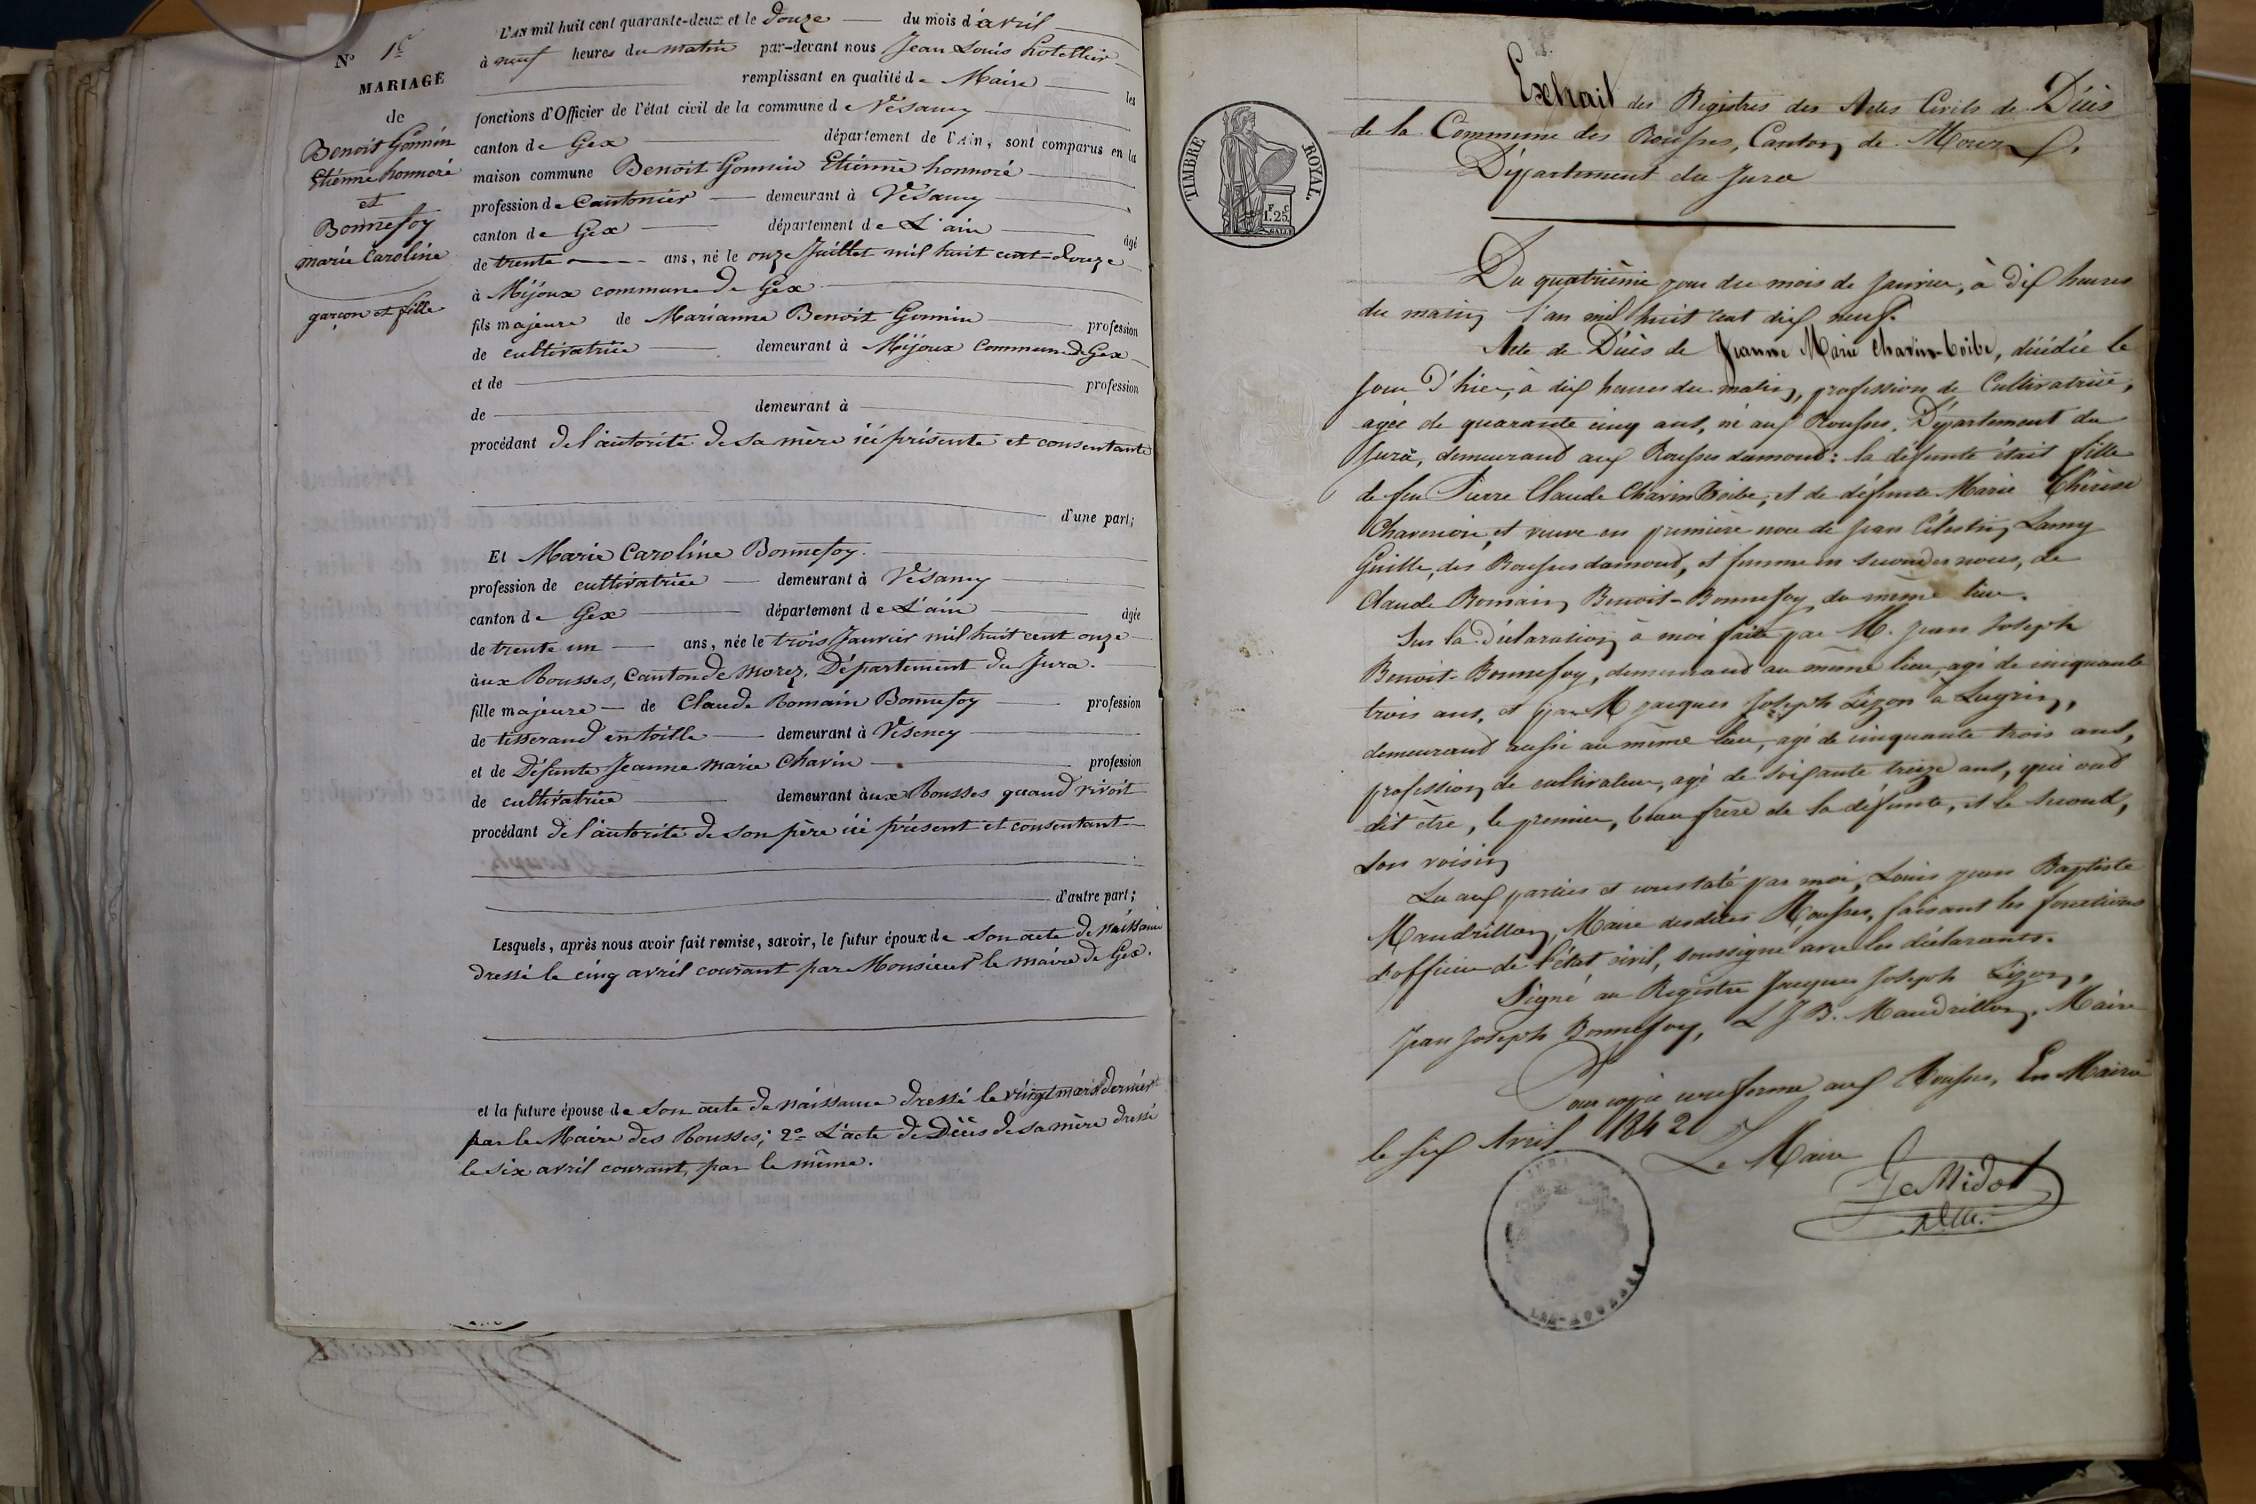 L'AN mil huit cent quarante-deux et le douze du mois d'avril
à neuf heures du matin par-devant nous Jean Louis
remplissant en qualité de Maire les
fonctions d'Officier de l'état civil de la commune de Vésancy
canton de Gex département de l'Ain, sont comparus en la
maison commune Benoit Gonnin Etiénne honnoré
profession de Cantonnier demeurant à Vésancy
canton de Gex département de L'ain âgé
de trente ans, né le onze Juillet mil huit cent douze
à Mijoux commune de Gex
fils majeure de Marianne Benoit Gonnin profession
de cultivatrice demeurant à Mijoux Commune de Gex
et de profession
de demeurant à
procédant de l'autorité de sa mère ici présente et consentante
d'une part;
Et Marie Caroline Bonnefoy.
profession de cultivatrice demeurant à Vésancy
canton de Gex département de L'ain âgée
de trente un ans, née le trois Janvier mil huit cent onze
àux Rousses, Canton de Morez, Département du Jura.
fille majeure de Claude Romain Bonnefoy profession
de tisserand en toille demeurant à Vésency
et de Défunte Jeanne marie Chavin profession
de cultivatrice demeurant àux Rousses quand vivoit
procédant de l'autorité de son père ici présent et consentant
d'autre part;
Lesquels, après nous avoir fait remise, savoir, le futur époux de son acte de naissance
dressé le cinq avril courant par Monsieur le maire de Gex.
et la future épouse de son acte de naissance dressé le vingt mars dernier
par le Maire des Rousses; 2º L'acte de Décès de sa mère dressé
le six avril courant, par le même.
Nº 1er
MARIAGE
de
Benoit Gonnin
Etiénne honnoré
et
Bonnefoy
marie Caroline
garçon et fille
TIMBRE ROYAL
F. C.
1.25
Extrait des Registres des Actes Civils de Décès
de la Commune des Rousses, Canton de Morez,
Département du Jura
Du quatrième jour du mois de Janvier, à dix heures
du matin l'an mil huit cent dix neuf.
Acte de Décès de Jeanne Marie Chavin-boibe, décédée le
jour d'hier, à dix heures du matin, profession de Cultivatrice,
agée de quarante cinq ans, né aux Rousses, Département du
Jura, demeurant aux Rousses damont: la défunte était fille
de feu Pierre Claude Chavin Boibe, et de défunte Marie Thérèse
et veuve en première noce de Jean Célestin Lamy
Guille, des Rousses damont, et femme en secondes noces, de
Claude Romain Benoit-Bonnefoy du même lieu.
Sur la déclaration à moi faite par M. Jean Joseph
Benoit-Bonnefoy, demeurant au même lieu, agé de cinquante
trois ans, et par M Jacques Joseph Lizon à Lugrin,
demeurant aussi au même lieu, agé de cinquante trois ans,
profession de cultivateur, agé de soixante treize ans, qui ont
dit être, le premier, beau frère de la défunte, et le second,
son voisin
Lu aux parties et constaté par moi, Louis Jean Baptiste
Mandrillon, Maire desdites Rousses, faisant les fonctions
d'officier de l'état civil, soussigné avec les déclarants.
Signé au Registre Jacques Joseph Lizon,
Jean Joseph Bonnefoy, L J B. Mandrillon, Maire
Pour copie conforme aux Rousses, En Mairie
le six Avril 1842
Le Maire
LES-ROUSSES